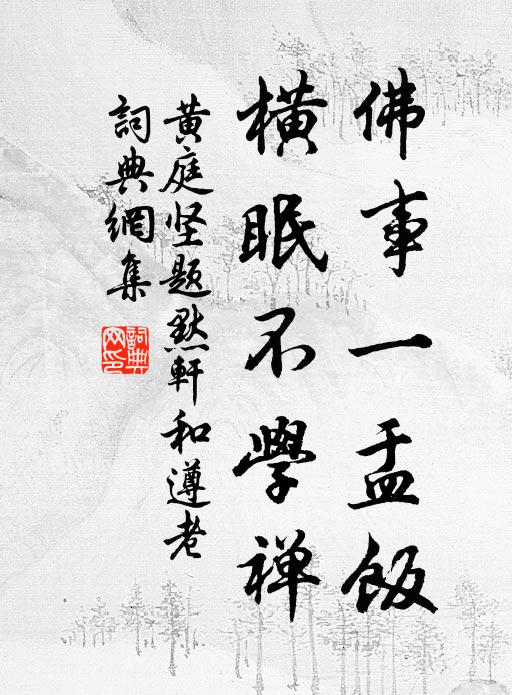 佛事一盂飯
橫眠不學禅
黃庭坚題默軒和遵老
詞典網集
詞典网印